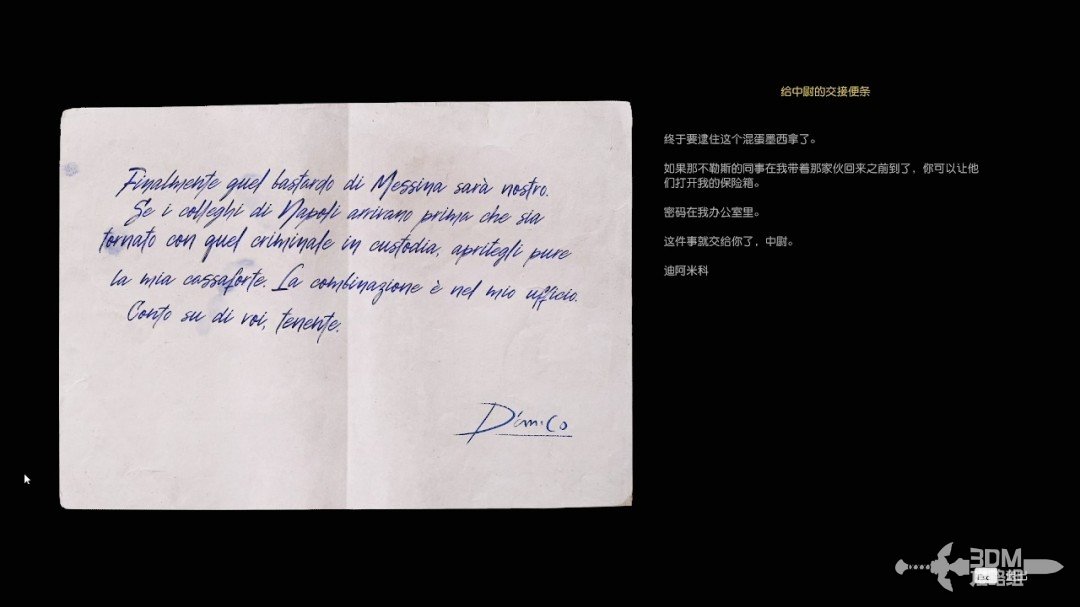 给中尉的交接便条
Finalmente quel bastardo di Messina sarà nostro.
Se i colleghi di Napoli arrivano prima che sia
tornato con quel criminale in custodia, apritegli pure
la mia cassaforte. La combinazione è nel mio ufficio.
Conto su di voi, tenente.
D'amico
终于要逮住这个混蛋墨西拿了。
如果那不勒斯的同事在我带着那家伙回来之前到了，你可以让他
们打开我的保险箱。
密码在我办公室里。
这件事就交给你了，中尉。
迪阿米科
3DM
Esc